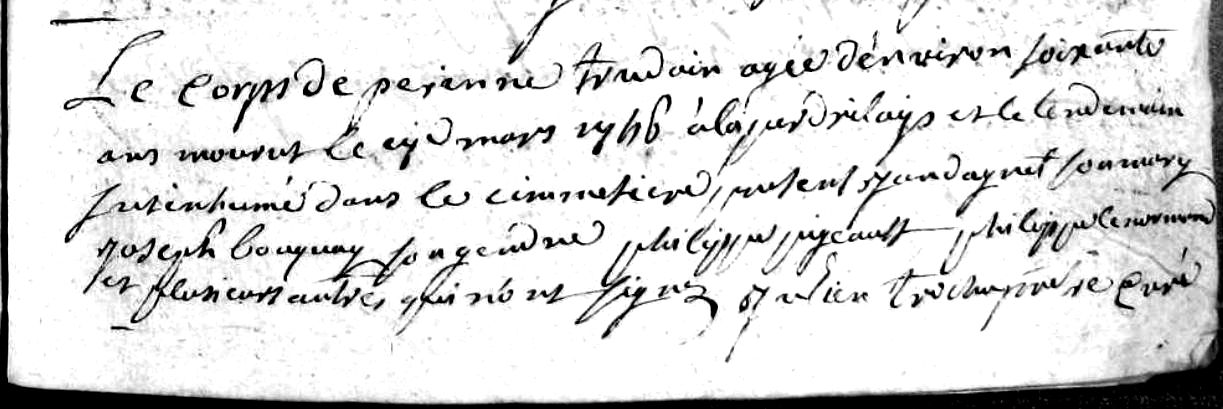 Le corps de perinne trudain agée d'environ soixante
ans mourut le mars 1746 à la et le lendemain
fut inhumé dans le cimmetiere present Jan dagnet son mary
Joseph bouquay son gendre philippe pigeault philippe lenormand
et plusieurs autres qui n'ont signez Julien prêtre curé